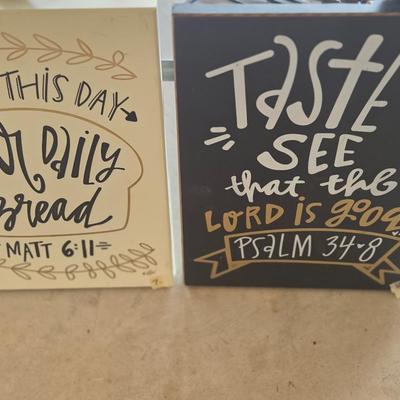 THIS DAY
Daily
Bread
MATT 6:11
TASTE
SEE
that the
LORD IS good
PSALM 34:8